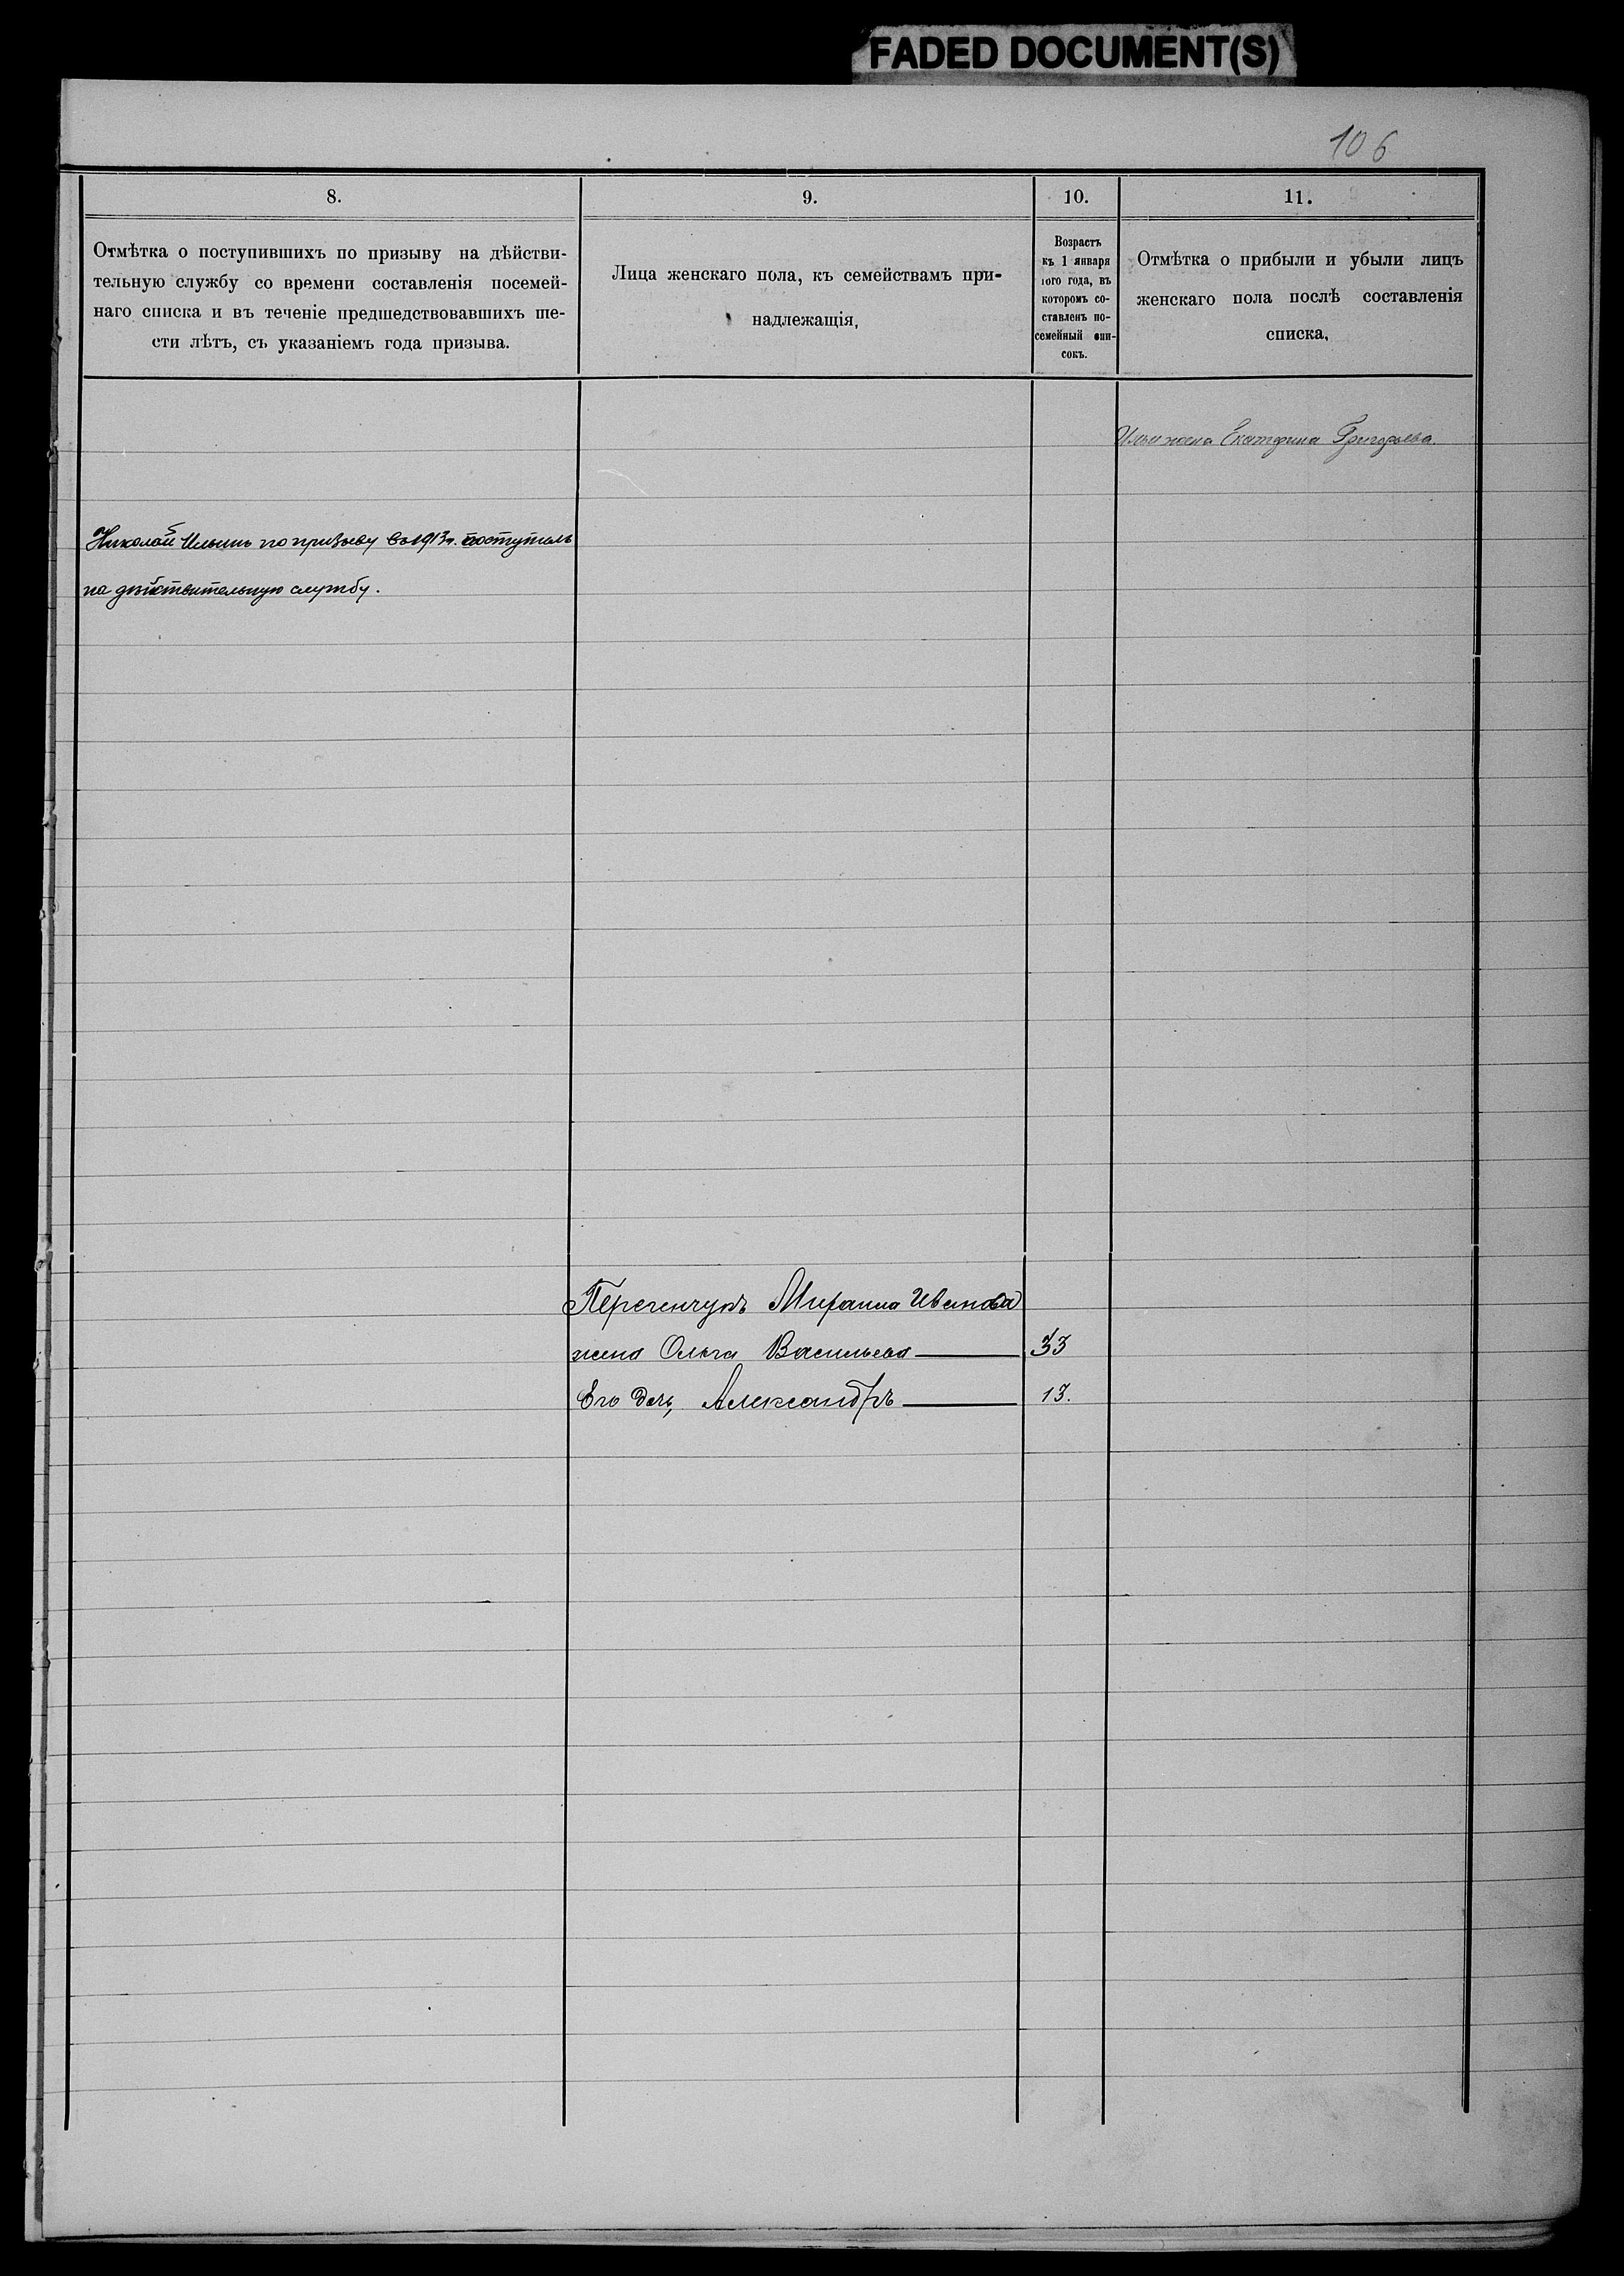 FADED DOCUMENT(S)
106
8.
Отмѣтка о поступившихъ по призыву на дѣйстви-
тельную службу со времени составленія посемей-
наго списка и въ теченіе предшедствовавшихъ ше-
сти лѣтъ, съ указаніемъ года призыва.
9.
Лица женскаго пола, къ семействамъ при-
надлежащія,
10.
Возрастъ
къ 1 января
того года, въ
которомъ со-
ставленъ по-
семейный спи-
сокъ.
11.
Отмѣтка о прибыли и убыли лицъ
женскаго пола послѣ составленія
списка,
Ильи жена Екатерина Григорьева.
Николай Ильинъ по призыву въ 1913 г. поступилъ
на дѣйствительную службу.
Михаила Иванова
жена Ольга Васильева 33
Его дочь, Александръ 13.